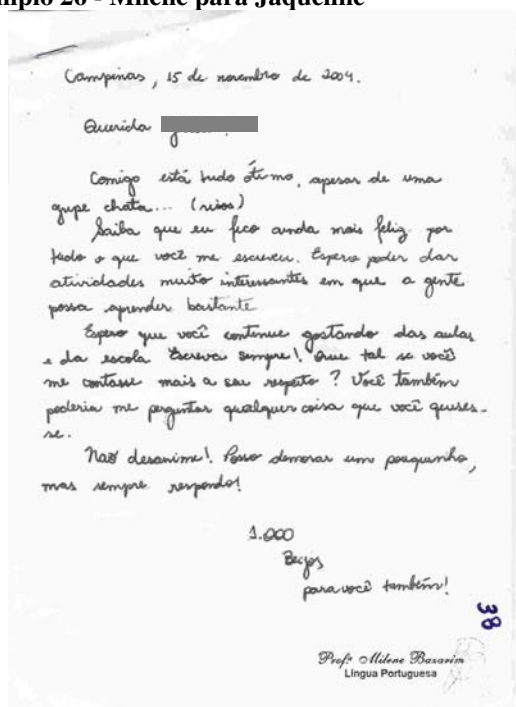 mplo 26 - Milene para Jaqueline
Campinas, 15 de novembro de 2004.
Querida
Comigo está tudo ótimo, apesar de uma
gripe chata... (risos)
Saiba que eu fico ainda mais feliz por
tudo o que você me escreveu. Espero poder dar
atividades muito interessantes em que a gente
possa aprender bastante
Espero que você continue gostando das aulas
e da escola Escreva sempre! Que tal se você
me contasse mais a seu respeito? Você também
poderia me perguntar qualquer coisa que você quises-
se.
Não desanime! Posso demorar um pouquinho,
mas sempre respondo!
1.000
Beijos
para você também!
38
Profª Milene Bazarim
Língua Portuguesa